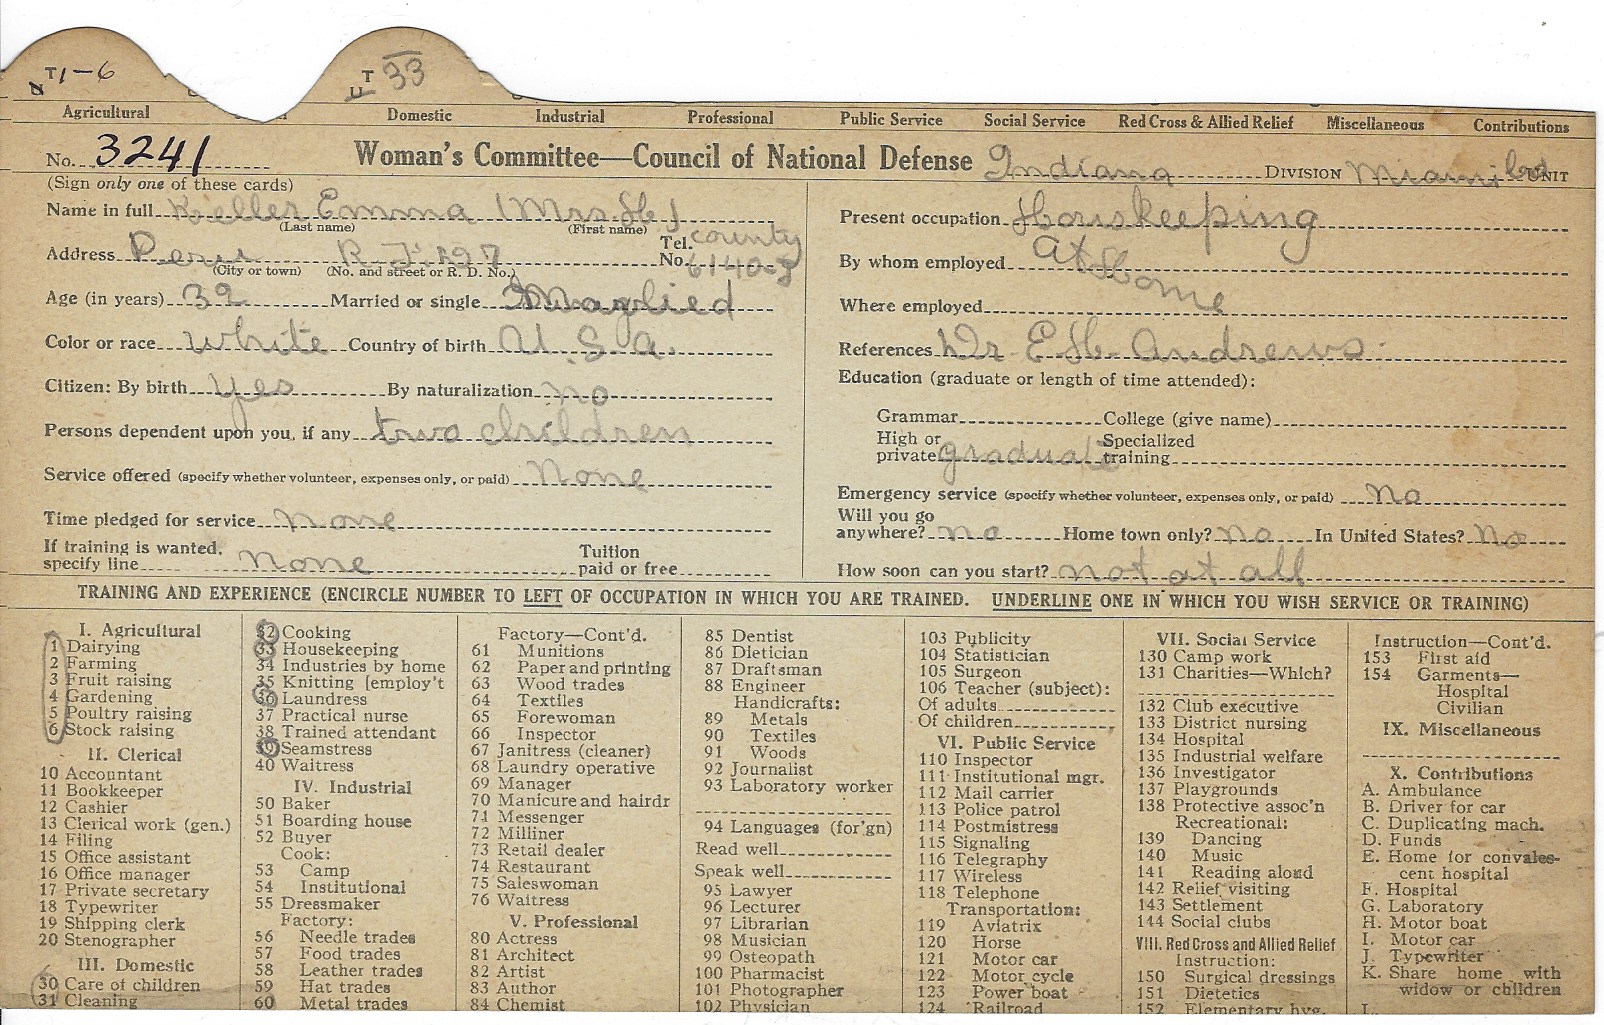 T 1-6
T 33
Agricultural Domestic Industrial Professional Public Service Social Service Red Cross & Allied Relief Miscellaneous Contributions
No. 3241 Woman's Committee—Council of National Defense Indiana DIVISION Miami UNIT
(Sign only one of these cards)
Name in full Keller Emma (Mrs. H)
(Last name) (First name)
Address Peru R. F. Tel. No. county
(City or town) (No. and street or R. D. No.)
Age (in years) 32 Married or single Married
Color or race White Country of birth U. S. a.
Citizen: By birth yes By naturalization no
Persons dependent upon you, if any two children
Service offered (specify whether volunteer, expenses only, or paid) None
Time pledged for service none
If training is wanted, specify line none Tuition paid or free
Present occupation Houskeeping
By whom employed at Home
Where employed
References Dr E H Andrews
Education (graduate or length of time attended):
Grammar College (give name)
High or private graduate Specialized training
Emergency service (specify whether volunteer, expenses only, or paid) No
Will you go anywhere? no Home town only? no In United States? No
How soon can you start? not at all
TRAINING AND EXPERIENCE (ENCIRCLE NUMBER TO LEFT OF OCCUPATION IN WHICH YOU ARE TRAINED. UNDERLINE ONE IN WHICH YOU WISH SERVICE OR TRAINING)
I. Agricultural
1 Dairying
2 Farming
3 Fruit raising
4 Gardening
5 Poultry raising
6 Stock raising
II. Clerical
10 Accountant
11 Bookkeeper
12 Cashier
13 Clerical work (gen.)
14 Filing
15 Office assistant
16 Office manager
17 Private secretary
18 Typewriter
19 Shipping clerk
20 Stenographer
III. Domestic
30 Care of children
31 Cleaning
32 Cooking
33 Housekeeping
34 Industries by home
35 Knitting [employ't
36 Laundress
37 Practical nurse
38 Trained attendant
39 Seamstress
40 Waitress
IV. Industrial
50 Baker
51 Boarding house
52 Buyer
Cook:
53 Camp
54 Institutional
55 Dressmaker
Factory:
56 Needle trades
57 Food trades
58 Leather trades
59 Hat trades
60 Metal trades
Factory—Cont'd.
61 Munitions
62 Paper and printing
63 Wood trades
64 Textiles
65 Forewoman
66 Inspector
67 Janitress (cleaner)
68 Laundry operative
69 Manager
70 Manicure and hairdr
71 Messenger
72 Milliner
73 Retail dealer
74 Restaurant
75 Saleswoman
76 Waitress
V. Professional
80 Actress
81 Architect
82 Artist
83 Author
84 Chemist
85 Dentist
86 Dietician
87 Draftsman
88 Engineer
Handicrafts:
89 Metals
90 Textiles
91 Woods
92 Journalist
93 Laboratory worker
94 Languages (for'gn)
Read well
Speak well
95 Lawyer
96 Lecturer
97 Librarian
98 Musician
99 Osteopath
100 Pharmacist
101 Photographer
102 Physician
103 Publicity
104 Statistician
105 Surgeon
106 Teacher (subject):
Of adults
Of children
VI. Public Service
110 Inspector
111 Institutional mgr.
112 Mail carrier
113 Police patrol
114 Postmistress
115 Signaling
116 Telegraphy
117 Wireless
118 Telephone
Transportation:
119 Aviatrix
120 Horse
121 Motor car
122 Motor cycle
123 Power boat
124 Railroad
VII. Social Service
130 Camp work
131 Charities—Which?
132 Club executive
133 District nursing
134 Hospital
135 Industrial welfare
136 Investigator
137 Playgrounds
138 Protective assoc'n
Recreational:
139 Dancing
140 Music
141 Reading aloud
142 Relief visiting
143 Settlement
144 Social clubs
VIII. Red Cross and Allied Relief
Instruction:
150 Surgical dressings
151 Dietetics
152 Elementary hyg.
Instruction—Cont'd.
153 First aid
154 Garments—
Hospital
Civilian
IX. Miscellaneous
X. Contributions
A. Ambulance
B. Driver for car
C. Duplicating mach.
D. Funds
E. Home for convales-
cent hospital
F. Hospital
G. Laboratory
H. Motor boat
I. Motor car
J. Typewriter
K. Share home with
widow or children
L.